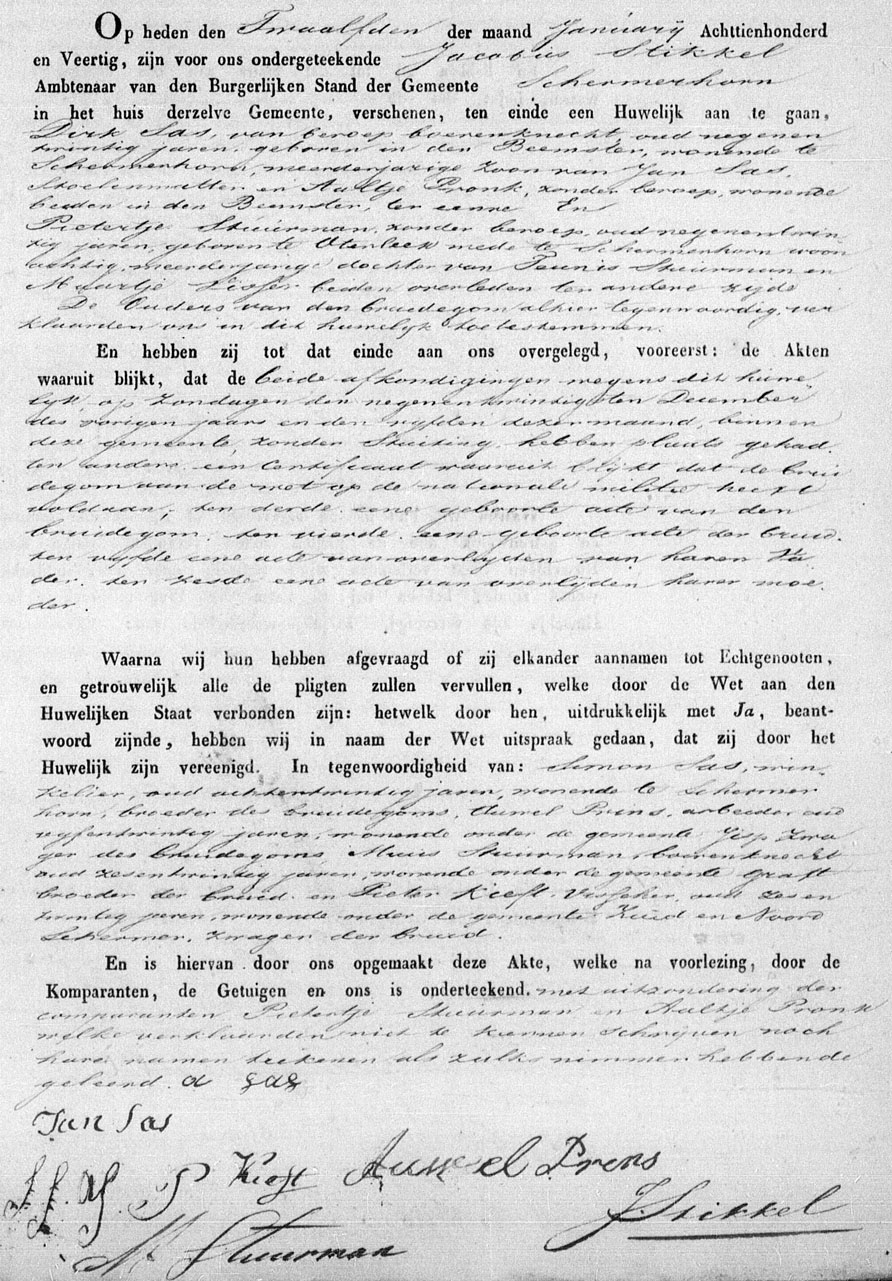 Op heden den Twaalfden der maand Januarij Achttienhonderd
en Veertig, zijn voor ons ondergeteekende Jacobus Stikkel
Ambtenaar van den Burgerlijken Stand der Gemeente Schermerhorn
in het huis derzelve Gemeente, verschenen, ten einde een Huwelijk aan te gaan,
Dirk Sas, van beroep boerenknecht, oud negenen
twintig jaren, geboren in den Beemster, wonende te
Schermerhorn, meerderjarige zoon van Jan Sas,
Stoelenmatter, en Aaltje Pronk, zonder beroep, wonende
beiden in den Beemster, ter eenre En
Pietertje Stuurman, zonder beroep, oud negenentwin
tig jaren, geboren te Oterleek mede te Schermerhorn woon
achtig, meerderjarige dochter van Teunis Stuurman en
Maartje beiden overleden ter andere zijde
De Ouders van den bruidegom alhier tegenwoordig, ver
klaarden ons in dit huwelijk toetestemmen.
En hebben zij tot dat einde aan ons overgelegd, vooreerst: de Akten
waaruit blijkt, dat de beide afkondigingen wegens dit huwe
lijk, op Zondagen den negenentwintigsten December
des vorigen jaars en den vyfden dezer maand, binnen
deze gemeente, zonder Stuiting, hebben plaats gehad
ten anders een Certificaat waaruit blijkt dat de brui
degom aan de wet op de nationale militie heeft
voldaan; ten derde eene geboorte acte van den
bruidegom, ten vierde eene geboorte acte der bruid.
ten vyfde eene acte van overlyden van haren Va
der, ten zesde eene acte van overlijden harer moe
der.
Waarna wij hun hebben afgevraagd of zij elkander aannamen tot Echtgenooten,
en getrouwelijk alle de pligten zullen vervullen, welke door de Wet aan den
Huwelijken Staat verbonden zijn: hetwelk door hen, uitdrukkelijk met Ja, beant-
woord zijnde, hebben wij in naam der Wet uitspraak gedaan, dat zij door het
Huwelijk zijn vereenigd. In tegenwoordigheid van: Simon Sas, win
kelier, oud achtentwintig jaren, wonende te Schermer
horn, broeder des bruidegoms, Auwel Prins, arbeider oud
vyfentwintig jaren, wonende onder de gemeente Jisp zwa
ger des bruidegoms, Stuurman, boerenknecht
oud zesentwintig jaren, wonende onder de gemeente Graft
broeder der bruid en Pieter Kieft, oud zesen
twintig jaren, wonende onder de gemeente Zuid en Noord
Schermer, zwager der bruid.
En is hiervan door ons opgemaakt deze Akte, welke na voorlezing, door de
Komparanten, de Getuigen en ons is onderteekend. met uitzondering der
comparanten Pietertje Stuurman en Aaltje Pronk
welke verklaarden niet te kunnen schrijven noch
hare namen teekenen als zulks nimmer hebbende
geleerd. d sas
Jan Sas
P Kieft Auwel Prens
J Stikkel
M Stuurman